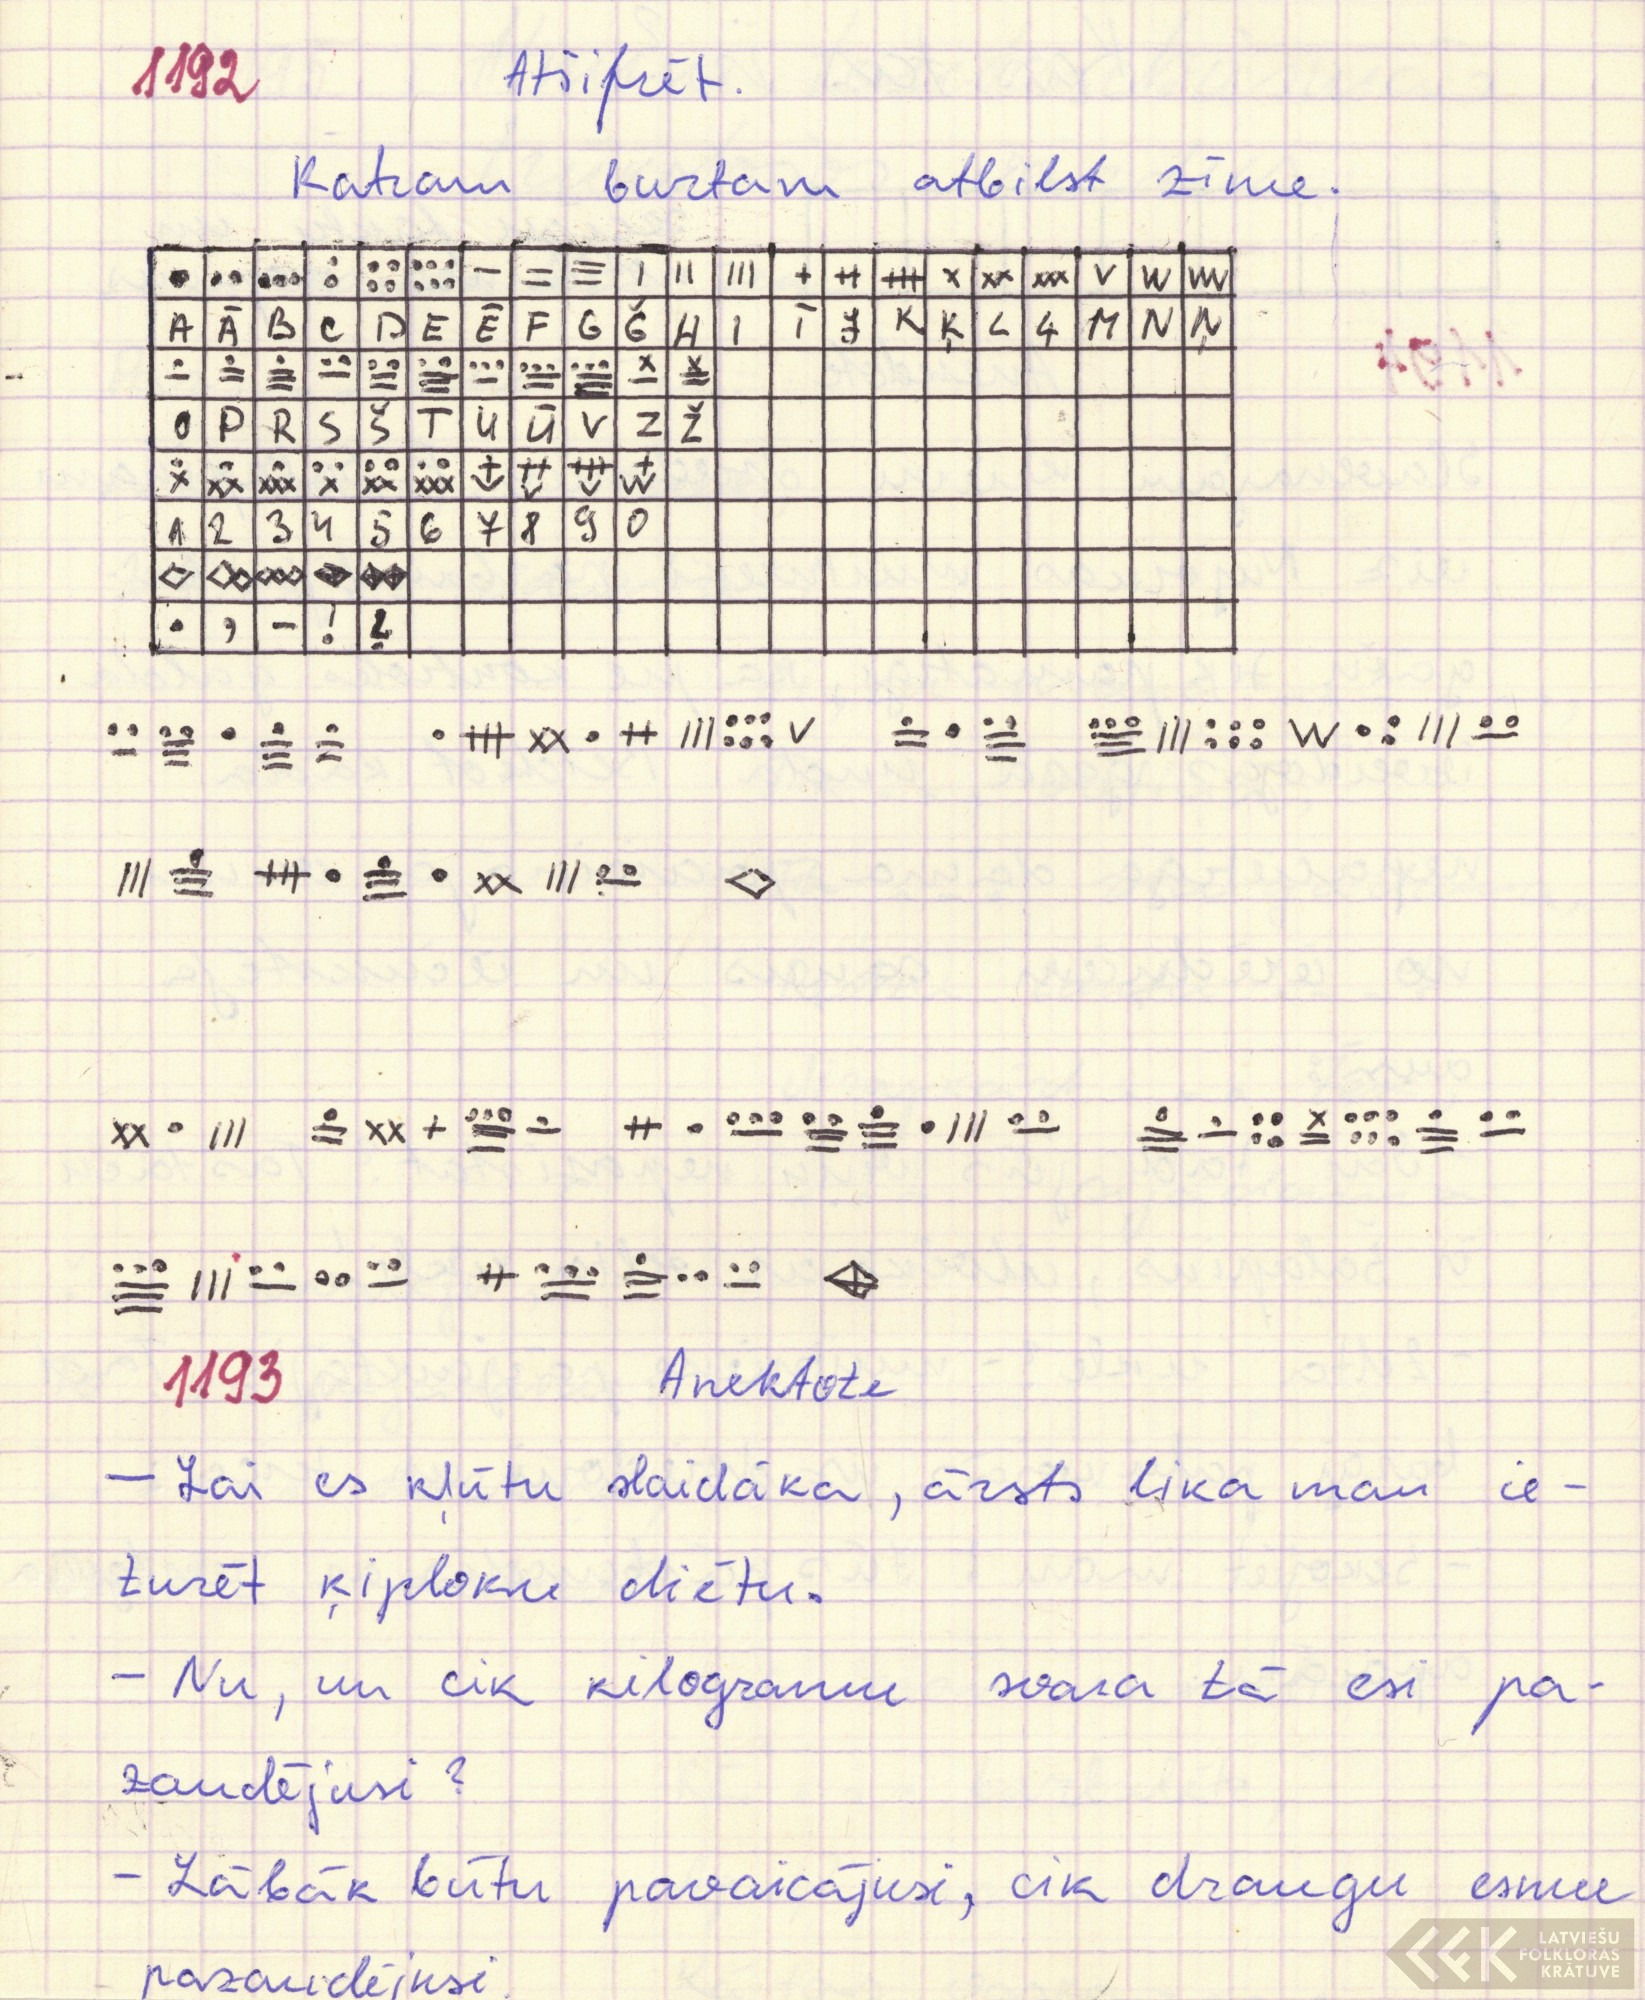 1192 Atšifrēt.
Katram burtam atbilst zīme.
A Ā B C D E Ē F G Ģ H I Ī J K Ķ L Ļ M N Ņ
O P R S Š T U Ū V Z Ž
1 2 3 4 5 6 7 8 9 0
. , - ! ?
1193 Anektote
- Lai es kļūtu slaidāka, ārsts lika man ie-
turēt ķiploku diētu.
- Nu, un cik kilogramu svara tā esi pa-
zaudējusi?
- Lābāk būtu pavaicājusi, cik draugu esmu
pazaudējusi.
LATVIEŠU
FOLKLORAS
KRĀTUVE